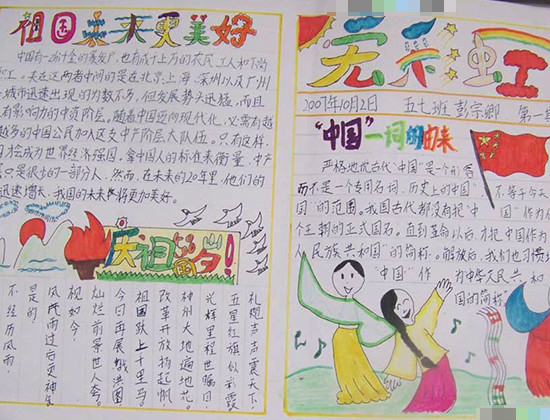 祖国未来更美好
中国有一个什么的蒸发户,也有成十上万的农民,工人和下岗
职工。夹在这两者中间的是在北京,上海,深圳以及广州
城市迅速出现的为数不多,但发展势头迅猛,而且
有影响力的中资阶层。随着中国迈向现代化,必需有
越多的中国公民加入这支中产阶层大队伍。只有这样,
才会成为世界经济强国。拿中国人的标在来衡量,中产
只是很小的一部分人,然而,在未来的20年里,他们的
迅速增长,我国的未来将更加美好。
庆祖国岁!
礼炮声声震天下
五星红旗似彩霞
光辉里程世瞩目
神州大地遍地花。
改革开放扬起帆
祖国跃上千里马
今日再展鸿图
灿烂前景世人夸。
视如今!
风雨过后更神
是的
不经历风雨
天彩虹
2007年10月2日 五七班 彭宗卿 第一
"中国"一词的由来
严格地说古代"中国"是个形容
而不是一个专用名词,历史上的"中国"不等于今天
国"的范围。我国古代都没有把"中国"作为
个王朝的正式国名。直到革命以后才把中国作为
人民族共和国"的简称。解放后,我们也习惯
"中国"作为中华人民共和
国的简称。